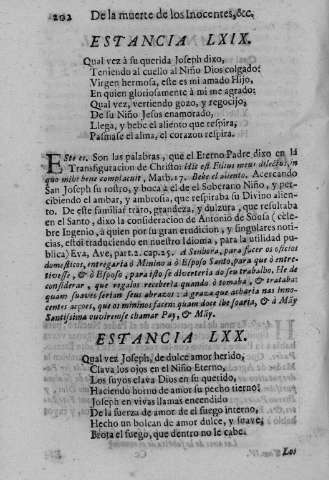 202 De la muerte de los Inocentes, &c.
ESTANCIA LXIX.
Qual vez a su querida Joseph dixo,
Teniendo al cuello al Niño Dios colgado:
Virgen hermosa, este es mi amado Hijo,
En quien gloriosamente à mi me agrado:
Qual vez, vertiendo gozo, y regocijo,
De su Niño Jesus enamorado,
Llega, y bebe el aliento que respira,
Pasmase el alma, el corazon respira.
Este es. Son las palabras, que el Eterno Padre dixo en la
Transfiguracion de Christo: Hic est Filius meus dilectus, in
quo mihi bene complacuit, Matth. 17. Bebe el aliento. Acercando
San Joseph su rostro, y boca à el de el Soberano Niño, y per-
cibiendo el ambar, y ambrosia, que respiraba su Divino alien-
to. De este familiar trato, grandeza, y dulzura, que resultaba
en el Santo, dixo la consideracion de Antonio de Sousa (cele-
bre Ingenio, à quien por su gran erudicion, y singulares noti-
cias, estoi traduciendo en nuestro Idioma, para la utilidad pu-
blica) Eva, Ave, part. 2. cap. 25. A Senhora, para fazer os oficios
domesticos, entregaria ò Minino a ò Esposo Santo, para que ò entre-
tivesse, & ò Esposo, para isto se divertiria do seu trabalho. He de
considerar, que regalos receberia quando ò tomaba, & trataba:
quam suaves seriam seus abrazos: a graza que acharia nas inno-
centes acçoes, que os mininos fazem: quam doce ibe soaria, & à Mãy
Santissima ouvirense chamar Pay, & Mãy.
ESTANCIA LXX.
Qual vez Joseph, de dulce amor herido,
Clava los ojos en el Niño Eterno,
Los suyos clava Dios en su querido,
Haciendo horno de amor su pecho tierno:
Joseph en vivas llamas encendido
De la fuerza de amor de el fuego interno,
Hecho un bolcan de amor dulce, y suave,
Brota el fuego, que dentro no le cabe.
Los